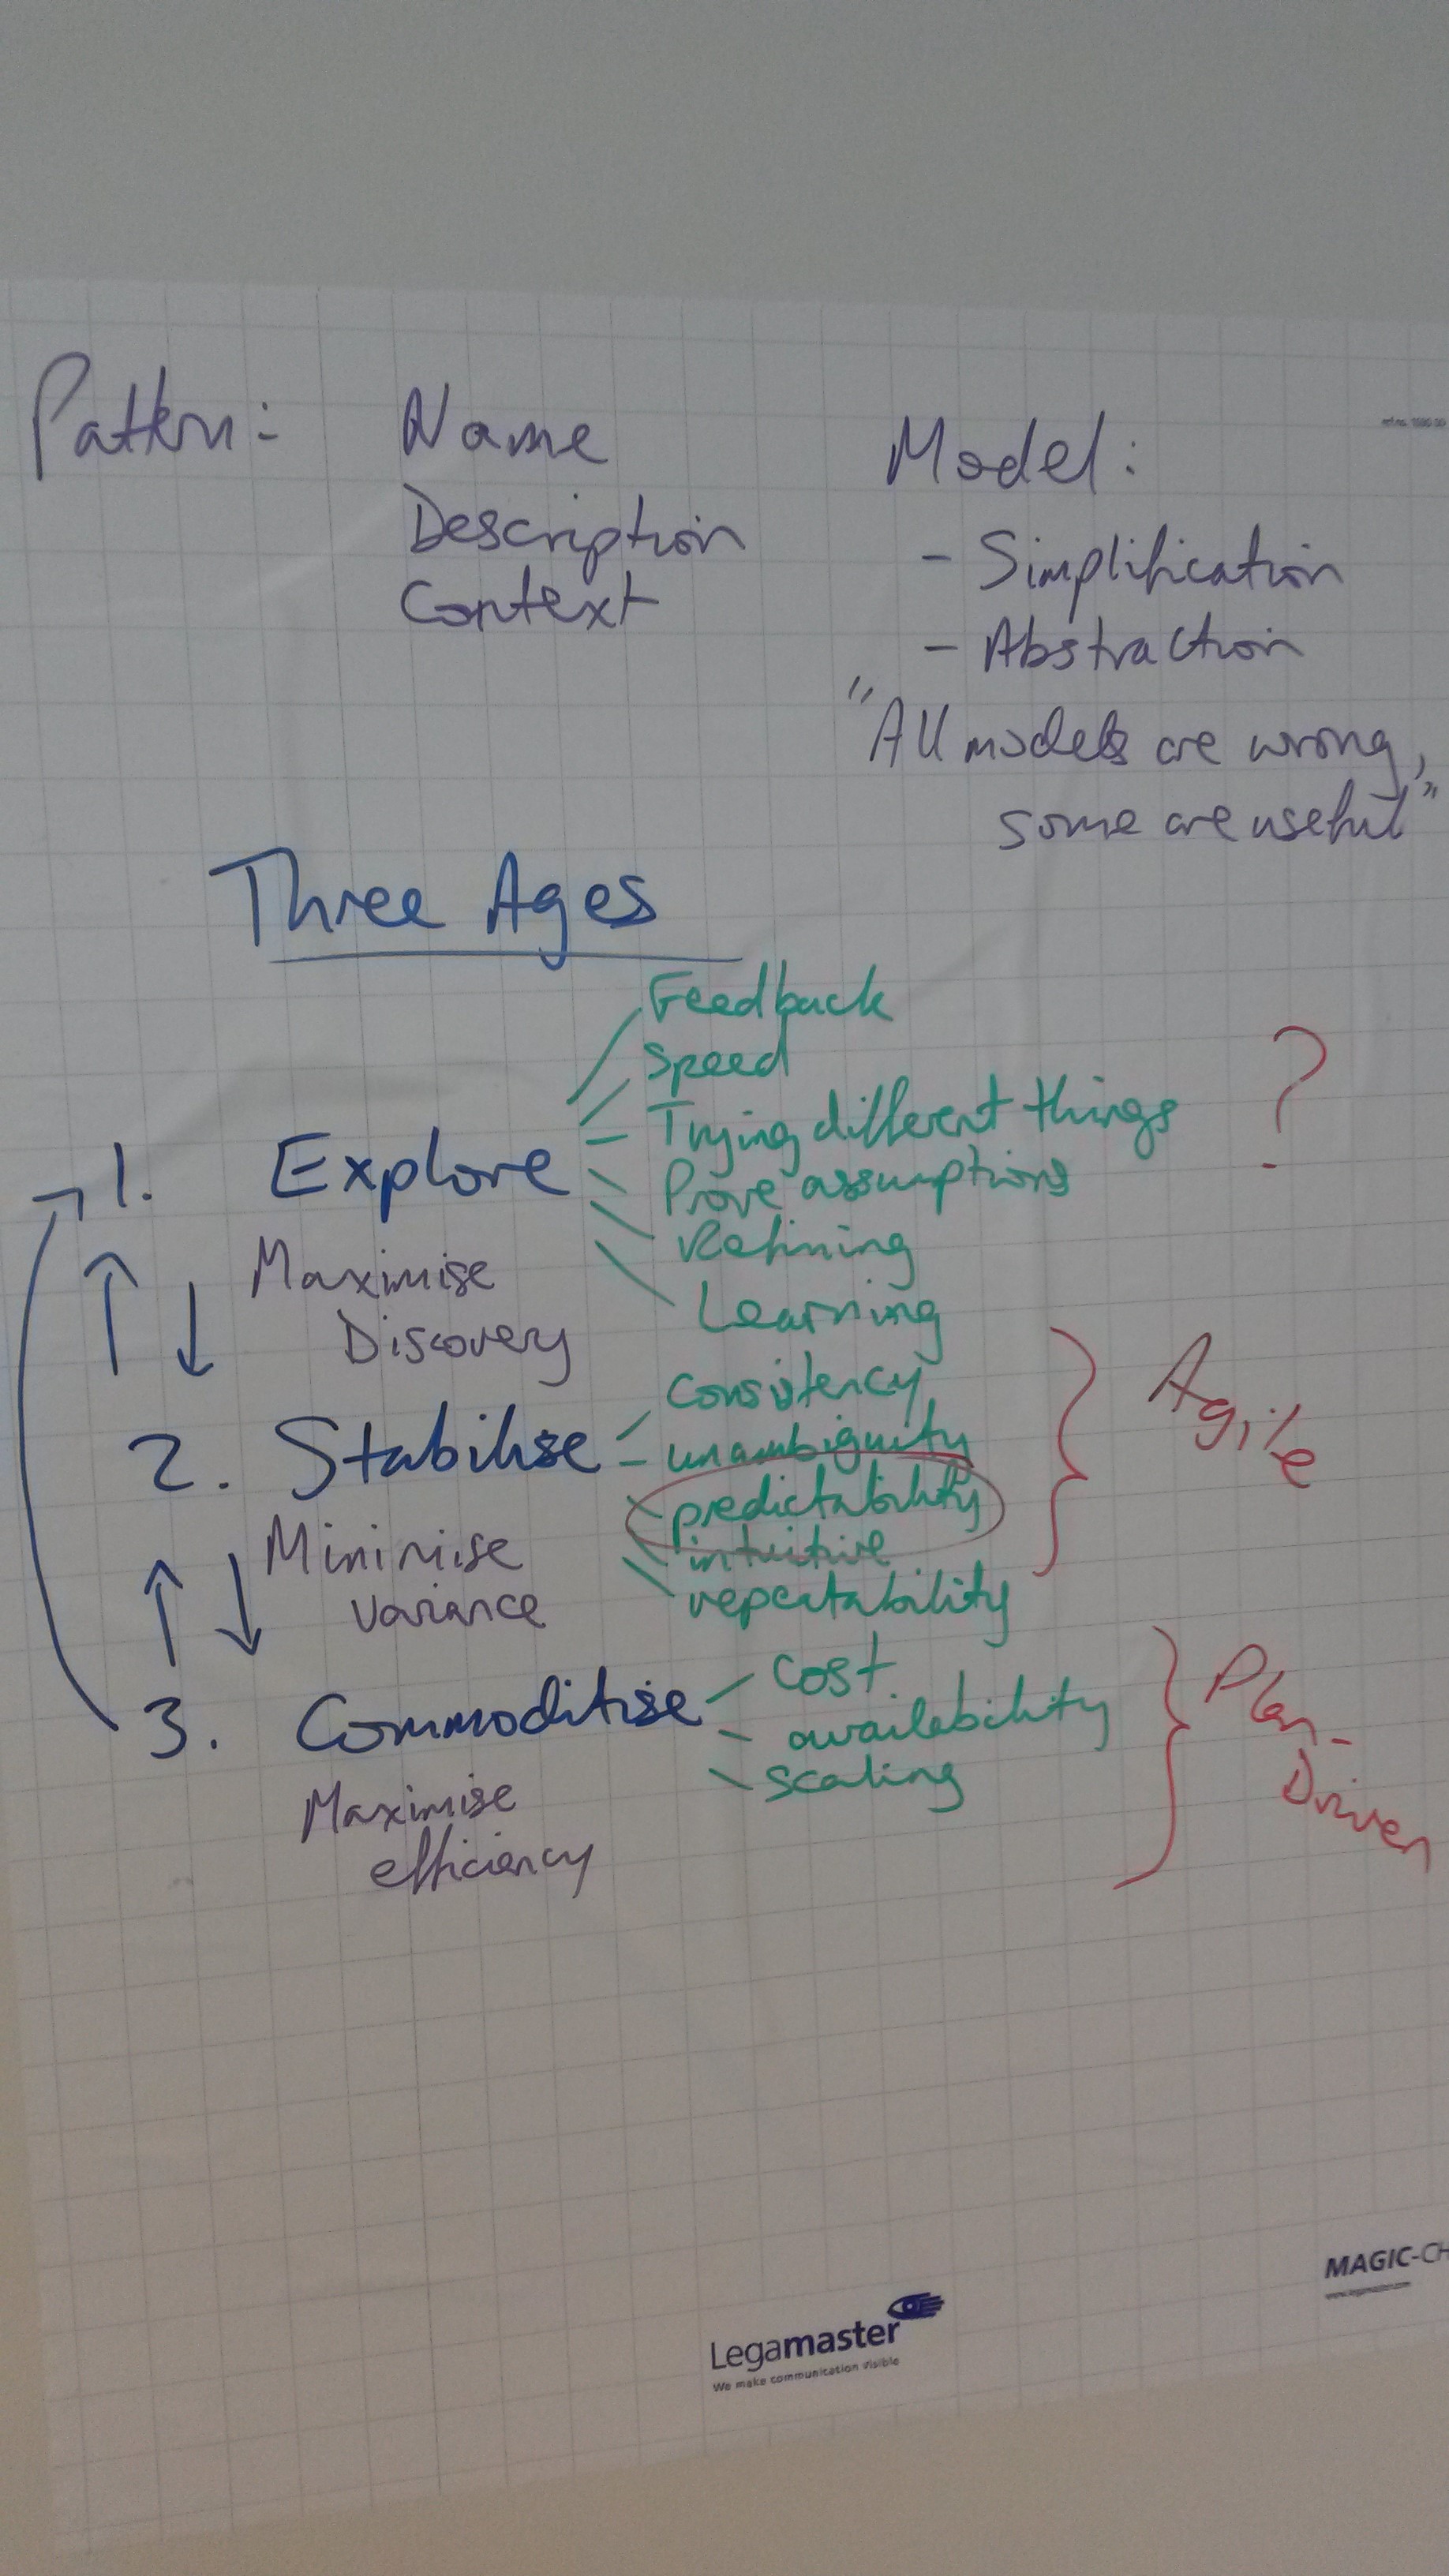 Pattern:
Name
Description
Context
Model:
- Simplification
- Abstraction
"All models are wrong,
some are useful"
Three Ages
1. Explore
Maximise
Discovery
Feedback
Speed
Trying different things
Prove assumptions
Refining
Learning
?
2. Stabilise
Minimise
variance
consistency
unambiguity
predictability
intuitive
repeatability
Agile
3. Commoditise
Maximise
efficiency
cost
availability
scaling
Plan-
Driven
Legamaster
We make communication visible
MAGIC-CH